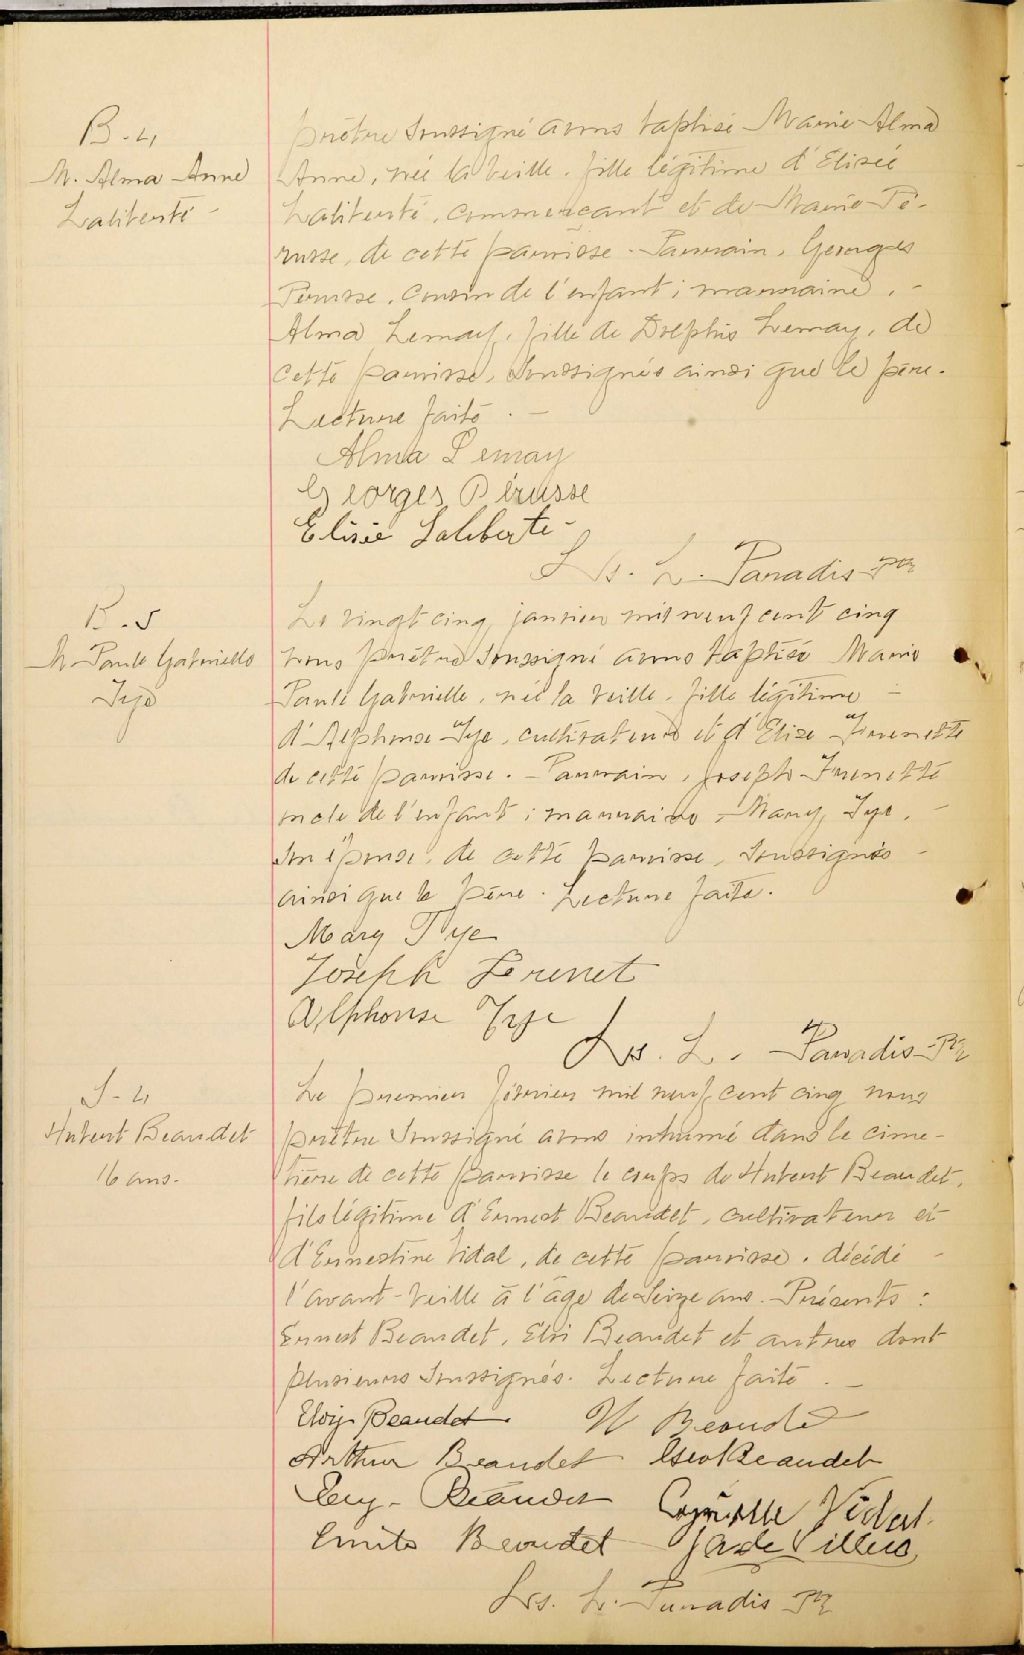 B-4
M. Alma Anne
Laliberté
prêtre soussigné avons baptisé Marie Alma
Anne, née la veille, fille légitime d'Elisée
Laliberté, commerçant et de Marie Pé-
russe, de cette paroisse. Parrain, Georges
Pérusse, cousin de l'enfant; marraine, -
Alma Lemay, fille de Delphis Lemay, de
cette paroisse, soussignés ainsi que le père.
Lecture faite. -
Alma Lemay
Georges Pérusse
Elisée Laliberté
Ls. L. Paradis Ptr
B-5
M. Paule Gabrielle
Tye
Le vingt cinq janvier mil neuf cent cinq
nous prêtre soussigné avons baptisé Marie
Paule Gabrielle, née la veille, fille légitime -
d'Alphonse Tye, cultivateur et d'Elise Frenette
de cette paroisse. - Parrain, Joseph Frenette
oncle de l'enfant; marraine, Mary Tye, -
son épouse, de cette paroisse, soussignés -
ainsi que le père. Lecture faite.
Mary Tye
Joseph Frenet
Alphonse Tye
Ls. L. Paradis Ptr
S-4
Hubert Beaudet
16 ans.
Le premier février mil neuf cent cinq nous
prêtre soussigné avons inhumé dans le cime-
tière de cette paroisse le corps de Hubert Beaudet,
fils légitime d'Ernest Beaudet, cultivateur et
d'Ernestine Vidal, de cette paroisse, décédé -
l'avant-veille à l'âge de seize ans. Présents:
Ernest Beaudet, Eloi Beaudet et autres dont
plusieurs soussignés. Lecture faite. -
Eloi Beaudet Beaudet
Arthur Beaudet Beaudet
Beaudet Vidal
Beaudet de Villers
Ls. L. Paradis Ptr